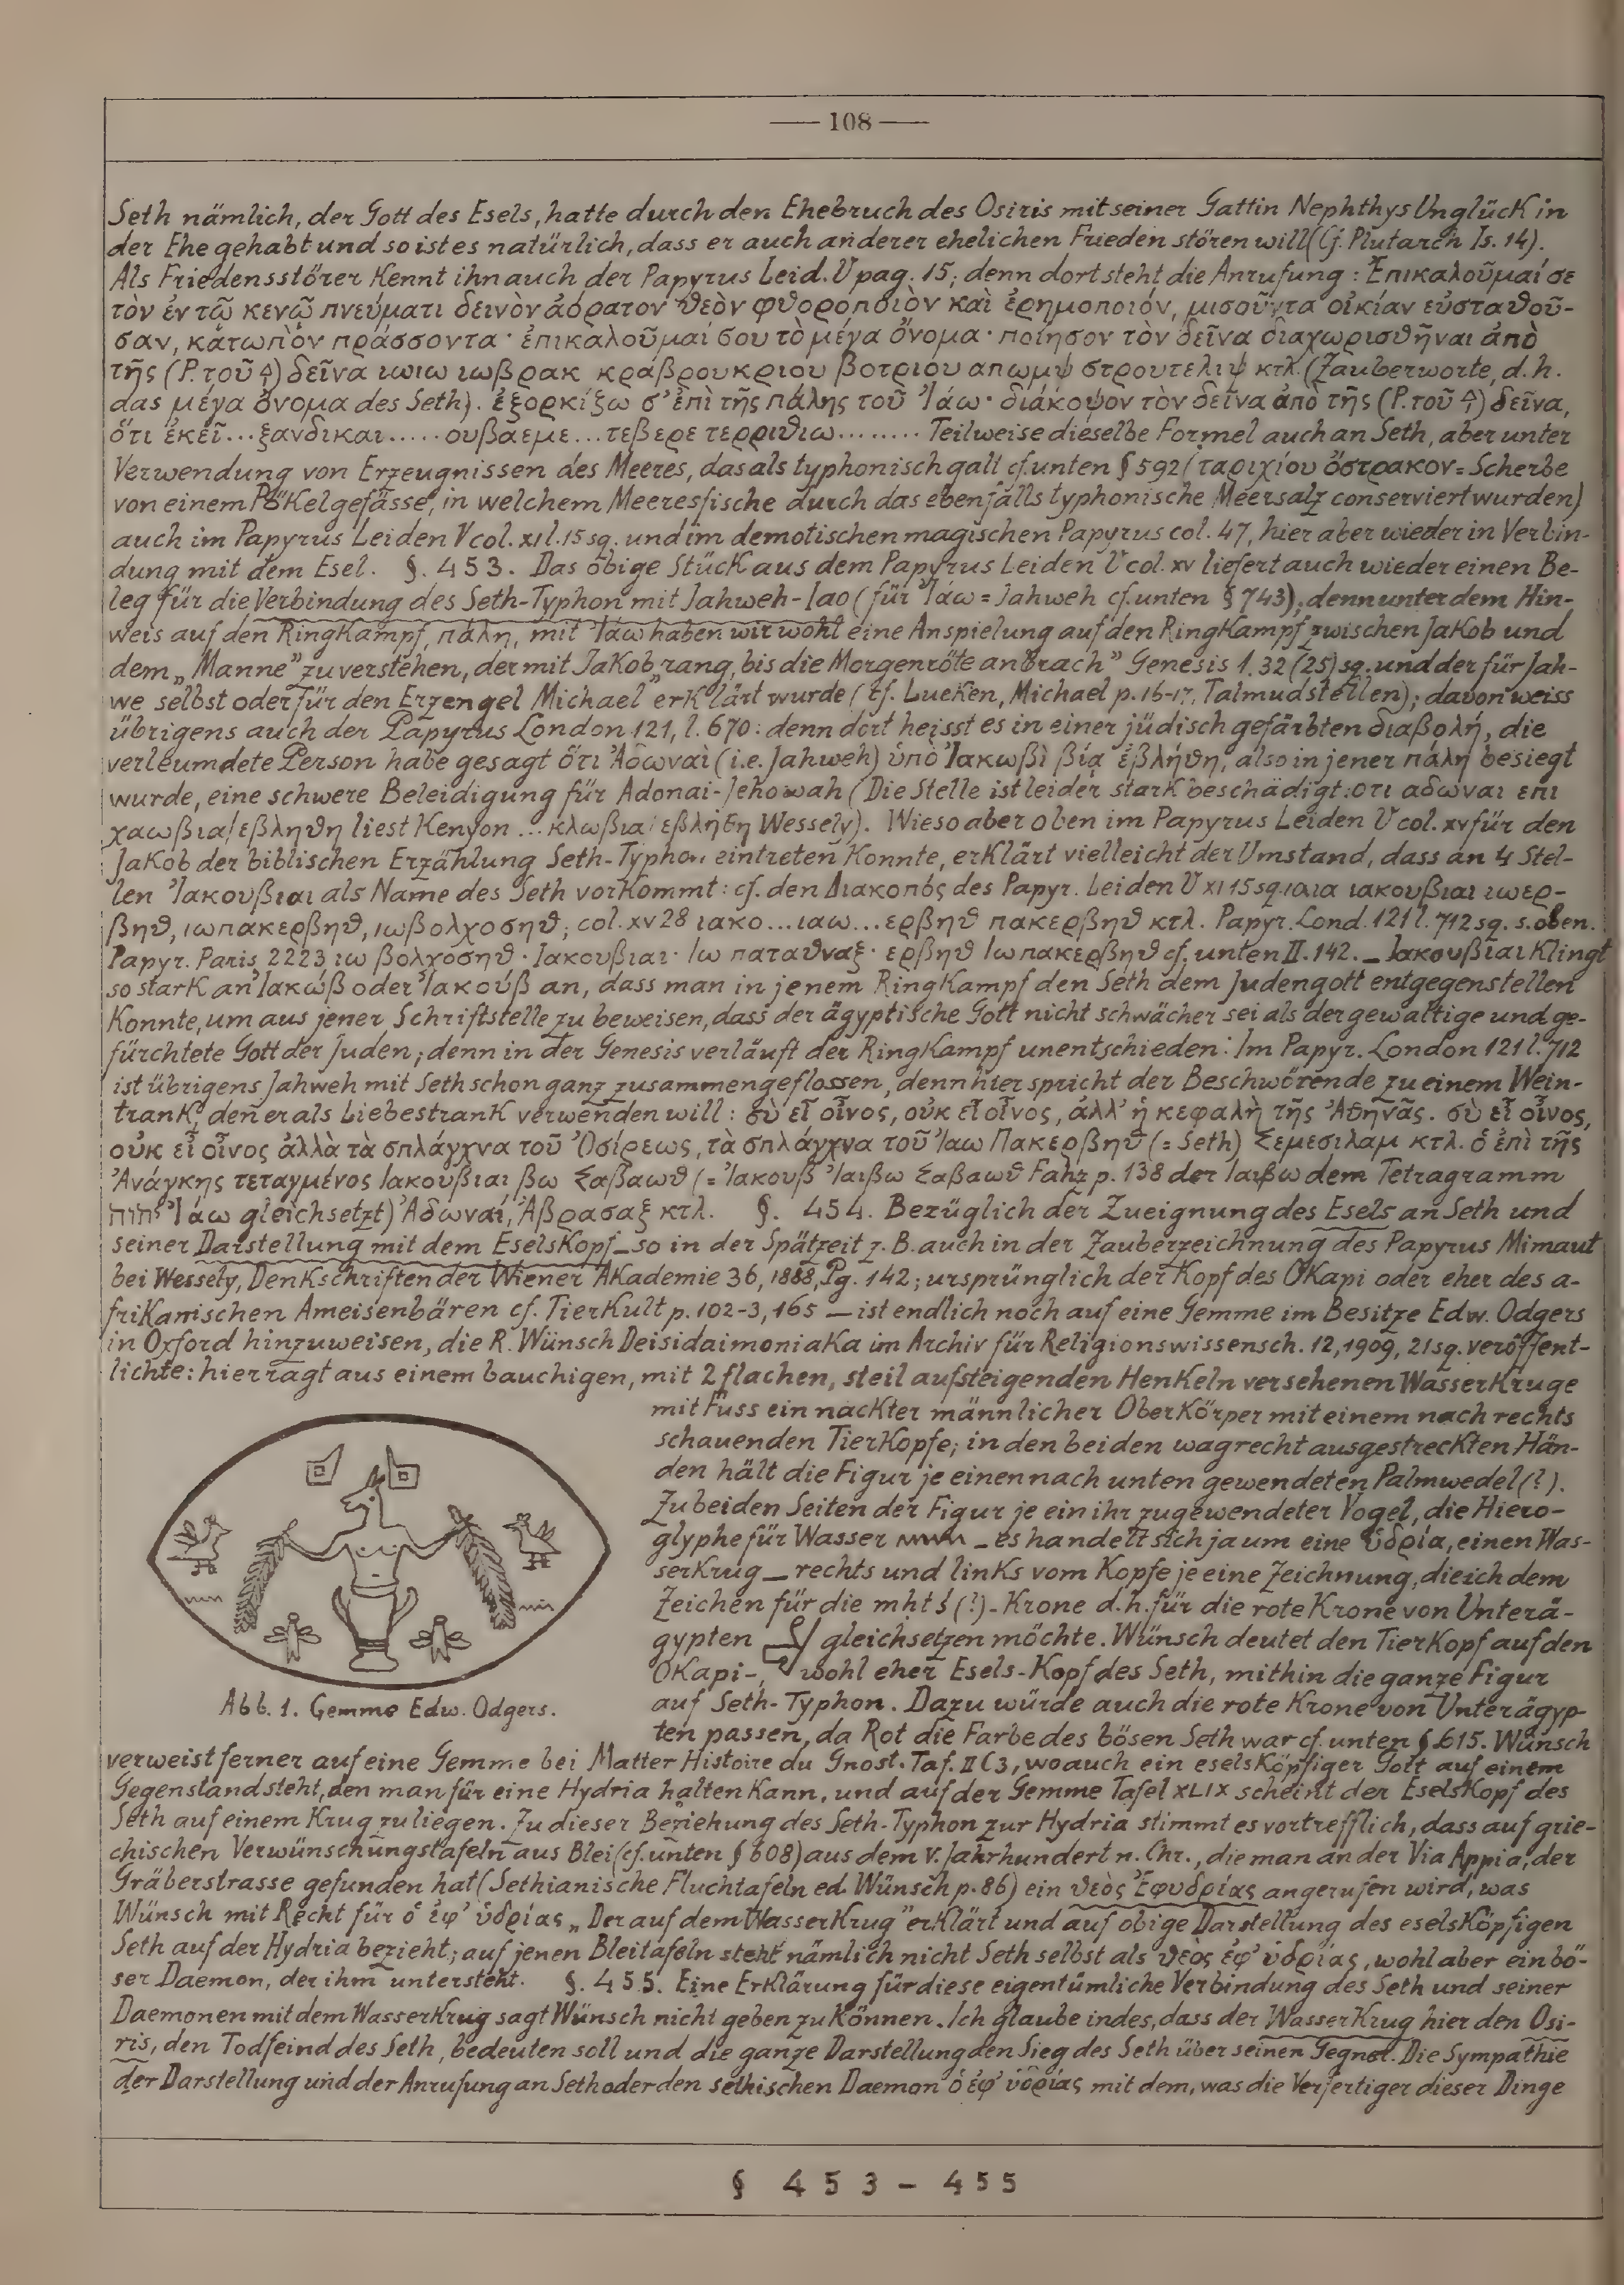 — 108 —
Seth nämlich, der Gott des Esels, hatte durch den Ehebruch des Osiris mit seiner Gattin Nephthys Unglück in
der Ehe gehabt und so ist es natürlich, dass er auch anderer ehelichen Frieden stören will (Cf. Plutarch Is. 14).
Als Friedensstörer kennt ihn auch der Papyrus Leid. V pag. 15; denn dort steht die Anrufung: Ἐπικαλοῦμαί σε
τὸν ἐν τῷ κενῷ πνεύματι δεινὸν ἀόρατον θεὸν φθοροποιὸν καὶ ἐρημοποιόν, μισοῦντα οἰκίαν εὐσταθοῦ-
σαν, κάτωπὸν πράσσοντα· ἐπικαλοῦμαί σου τὸ μέγα ὄνομα· ποίησον τὸν δεῖνα διαχωρισθῆναι ἀπὸ
τῆς (P. τοῦ) δεῖνα ιωιω ιωβρακ κραβρουκριου βοτριου απωμψ στρουτελιψ κτλ. (Zauberworte, d.h.
das μέγα ὄνομα des Seth). ἐξορκίζω σ' ἐπὶ τῆς πάλης τοῦ Ἰάω· διάκοψον τὸν δεῖνα ἀπὸ τῆς (P. τοῦ) δεῖνα,
ὅτι ἐκεῖ...ξανδικαι.....ουβαεμε...τεβερε τερριθιω........ Teilweise dieselbe Formel auch an Seth, aber unter
Verwendung von Erzeugnissen des Meeres, das als typhonisch galt cf. unten § 592 (ταριχίου ὄστρακον = Scherbe
von einem Pökelgefässe, in welchem Meeresfische durch das ebenfalls typhonische Meersalz conserviert wurden)
auch im Papyrus Leiden V col. XI l. 15 sq. und im demotischen magischen Papyrus col. 47, hier aber wieder in Verbin-
dung mit dem Esel. §. 453. Das obige Stück aus dem Papyrus Leiden V col. XV liefert auch wieder einen Be-
leg für die Verbindung des Seth-Typhon mit Jahweh-Iao (für Ἰάω = Jahweh cf. unten § 743), denn unter dem Hin-
weis auf den Ringkampf, πάλη, mit Ἰάω haben wir wohl eine Anspielung auf den Ringkampf zwischen Jakob und
dem „Manne" zu verstehen, der mit Jakob „rang, bis die Morgenröte anbrach" Genesis 1. 32 (25) sq. und der für Jah-
we selbst oder für den Erzengel Michael erklärt wurde (cf. Lueken, Michael p. 16-17, Talmudstellen); davon weiss
übrigens auch der Papyrus London 121, l. 670: denn dort heisst es in einer jüdisch gefärbten διαβολή, die
verleumdete Person habe gesagt ὅτι Ἀδωναὶ (i.e. Jahweh) ὑπὸ Ἰακωβὶ βίᾳ ἐβλήθη, also in jener πάλη besiegt
wurde, eine schwere Beleidigung für Adonai-Jehowah (Die Stelle ist leider stark beschädigt: οτι αδωναι επι
χαωβια/εβληθη liest Kenyon ... κλωβια/εβληθη Wessely). Wieso aber oben im Papyrus Leiden V col. XV für den
Jakob der biblischen Erzählung Seth-Typhon eintreten konnte, erklärt vielleicht der Umstand, dass an 4 Stel-
len Ἰακουβιαι als Name des Seth vorkommt: cf. den Διακοπός des Papyr. Leiden V XI 15 sq. ιαια ιακουβιαι ιωερ-
βηθ, ιωπακερβηθ, ιωβολχοσηθ; col. XV 28 ιακο...ιαω...ερβηθ πακερβηθ κτλ. Papyr. Lond. 121 l. 712 sq. s. oben.
Papyr. Paris 2223 ιω βολχοσηθ· Ιακουβιαι· Ιω παταθναξ· ερβηθ Ιωπακερβηθ cf. unten II. 142. _ Ιακουβιαι klingt
so stark an Ἰακώβ oder Ἰακούβ an, dass man in jenem Ringkampf den Seth dem Judengott entgegenstellen
konnte, um aus jener Schriftstelle zu beweisen, dass der ägyptische Gott nicht schwächer sei als der gewaltige und ge-
fürchtete Gott der Juden; denn in der Genesis verläuft der Ringkampf unentschieden. Im Papyr. London 121 l. 712
ist übrigens Jahweh mit Seth schon ganz zusammengeflossen, denn hier spricht der Beschwörende zu einem Wein-
trank, den er als Liebestrank verwenden will: σὺ εἶ οἶνος, οὐκ εἶ οἶνος, ἀλλ' ἡ κεφαλὴ τῆς Ἀθηνᾶς. σὺ εἶ οἶνος,
οὐκ εἶ οἶνος ἀλλὰ τὰ σπλάγχνα τοῦ Ὀσίρεως, τὰ σπλάγχνα τοῦ Ἰαω Πακερβηθ (= Seth) Σεμεσιλαμ κτλ. ὁ ἐπὶ τῆς
Ἀνάγκης τεταγμένος Ιακουβιαι βω Σαβαωθ (= Ἰακουβ Ἰαιβω Σαβαωθ Fahz p. 138 der Ιαιβω dem Tetragramm
Ἰάω gleichsetzt) Ἀδωναί, Ἀβρασαξ κτλ. §. 454. Bezüglich der Zueignung des Esels an Seth und
seiner Darstellung mit dem Eselskopf _ so in der Spätzeit z. B. auch in der Zauberzeichnung des Papyrus Mimaut
bei Wessely, Denkschriften der Wiener Akademie 36, 1888, Pg. 142; ursprünglich der Kopf des Okapi oder eher des a-
frikanischen Ameisenbären cf. Tierkult p. 102-3, 165 — ist endlich noch auf eine Gemme im Besitze Edw. Odgers
in Oxford hinzuweisen, die R. Wünsch Deisidaimoniaka im Archiv für Religionswissensch. 12, 1909, 21 sq. veröffent-
lichte: hier ragt aus einem bauchigen, mit 2 flachen, steil aufsteigenden Henkeln versehenen Wasserkruge
mit Fuss ein nackter männlicher Oberkörper mit einem nach rechts
schauenden Tierkopfe; in den beiden wagrecht ausgestreckten Hän-
den hält die Figur je einen nach unten gewendeten Palmwedel (?).
Zu beiden Seiten der Figur je ein ihr zugewendeter Vogel, die Hiero-
glyphe für Wasser _ es handelt sich ja um eine ὑδρία, einen Was-
serkrug _ rechts und links vom Kopfe je eine Zeichnung, die ich dem
Zeichen für die mht (?) - Krone d.h. für die rote Krone von Unterä-
gypten gleichsetzen möchte. Wünsch deutet den Tierkopf auf den
Okapi-, wohl eher Esels-Kopf des Seth, mithin die ganze Figur
auf Seth-Typhon. Dazu würde auch die rote Krone von Unterägyp-
ten passen, da Rot die Farbe des bösen Seth war cf. unten § 615. Wünsch
Abb. 1. Gemme Edw. Odgers.
verweist ferner auf eine Gemme bei Matter Histoire du Gnost. Taf. II C 3, wo auch ein eselsköpfiger Gott auf einem
Gegenstand steht, den man für eine Hydria halten kann, und auf der Gemme Tafel XLIX scheint der Eselskopf des
Seth auf einem Krug zu liegen. Zu dieser Beziehung des Seth-Typhon zur Hydria stimmt es vortrefflich, dass auf grie-
chischen Verwünschungstafeln aus Blei (cf. unten § 608) aus dem V. Jahrhundert n. Chr., die man an der Via Appia, der
Gräberstrasse gefunden hat (Sethianische Fluchtafeln ed. Wünsch p. 86) ein θεὸς Ἐφυδρίας angerufen wird, was
Wünsch mit Recht für ὁ ἐφ' ὑδρίας „Der auf dem Wasserkrug" erklärt und auf obige Darstellung des eselsköpfigen
Seth auf der Hydria bezieht; auf jenen Bleitafeln steht nämlich nicht Seth selbst als θεὸς ἐφ' ὑδρίας, wohl aber ein bö-
ser Daemon, der ihm untersteht. §. 455. Eine Erklärung für diese eigentümliche Verbindung des Seth und seiner
Daemonen mit dem Wasserkrug sagt Wünsch nicht geben zu können. Ich glaube indes, dass der Wasserkrug hier den Osi-
ris, den Todfeind des Seth, bedeuten soll und die ganze Darstellung den Sieg des Seth über seinen Gegner. Die Sympathie
der Darstellung und der Anrufung an Seth oder den sethischen Daemon ὁ ἐφ' ὑδρίας mit dem, was die Verfertiger dieser Dinge
§ 453 – 455